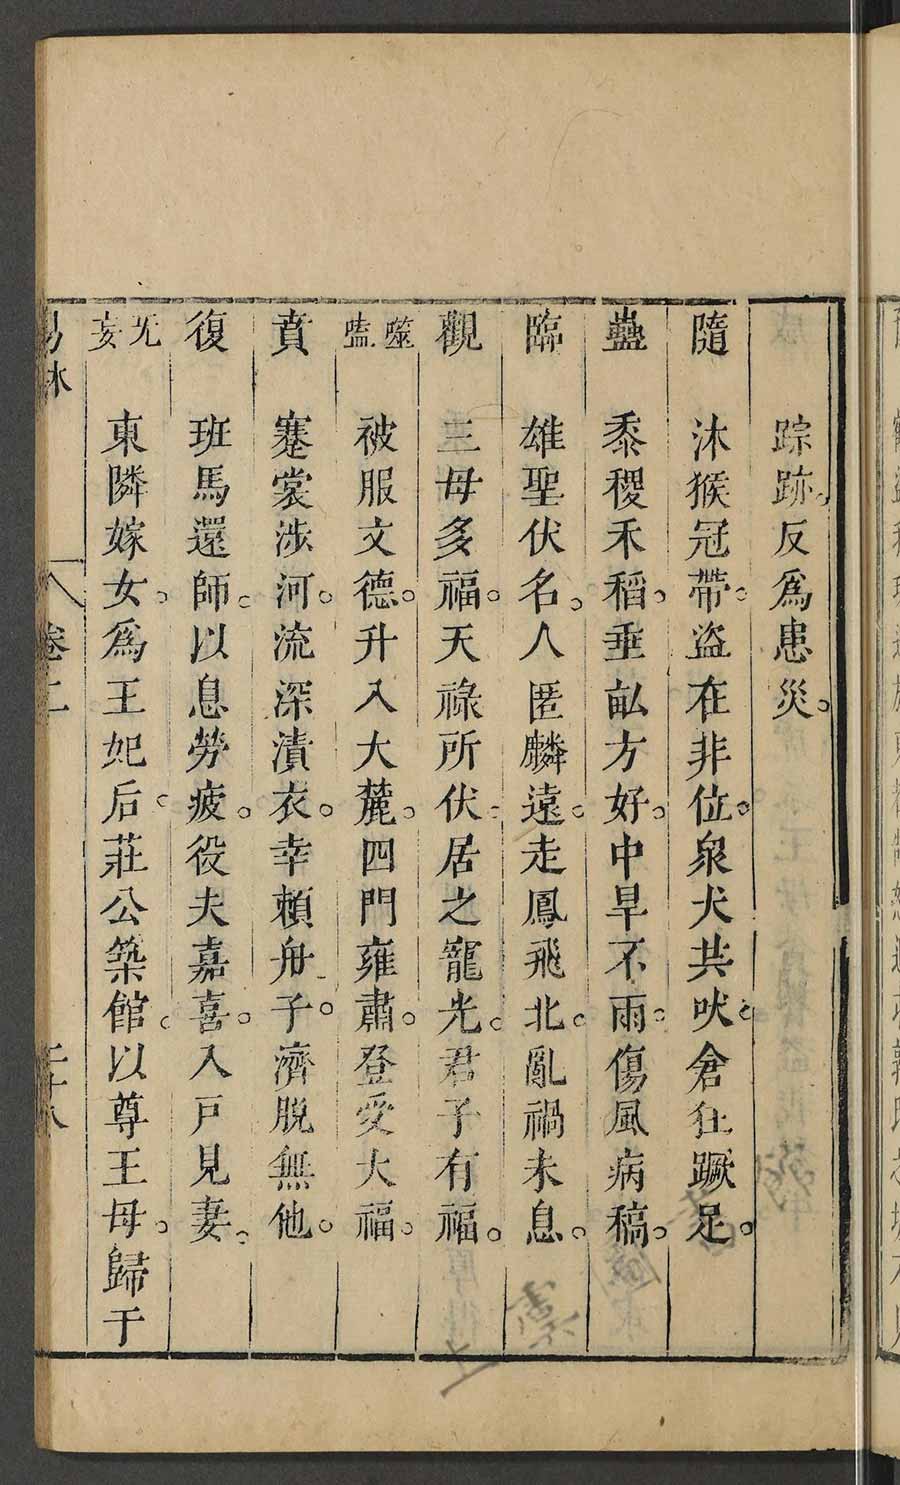 踪跡。反爲患災。
隨 沐猴冠帶。盜在非位。衆犬共吠。倉狂蹶足。
蠱 黍稷禾稻。垂畝方好。中旱不雨。傷風病稿。
臨 雄聖伏名。人匿麟遠。走鳳飛北。亂禍未息。
觀 三母多福。天祿所伏。居之寵光。君子有福。
噬嗑 被服文德。升入大麓。四門雍肅。登受大福。
賁 蹇裳涉河。流深漬衣。幸賴舟子。濟脫無他。
復 班馬還師。以息勞疲。役夫嘉喜。入戸見妻。
无妄 東隣嫁女。爲王妃后。莊公築館。以尊王母。歸于
易林 卷二